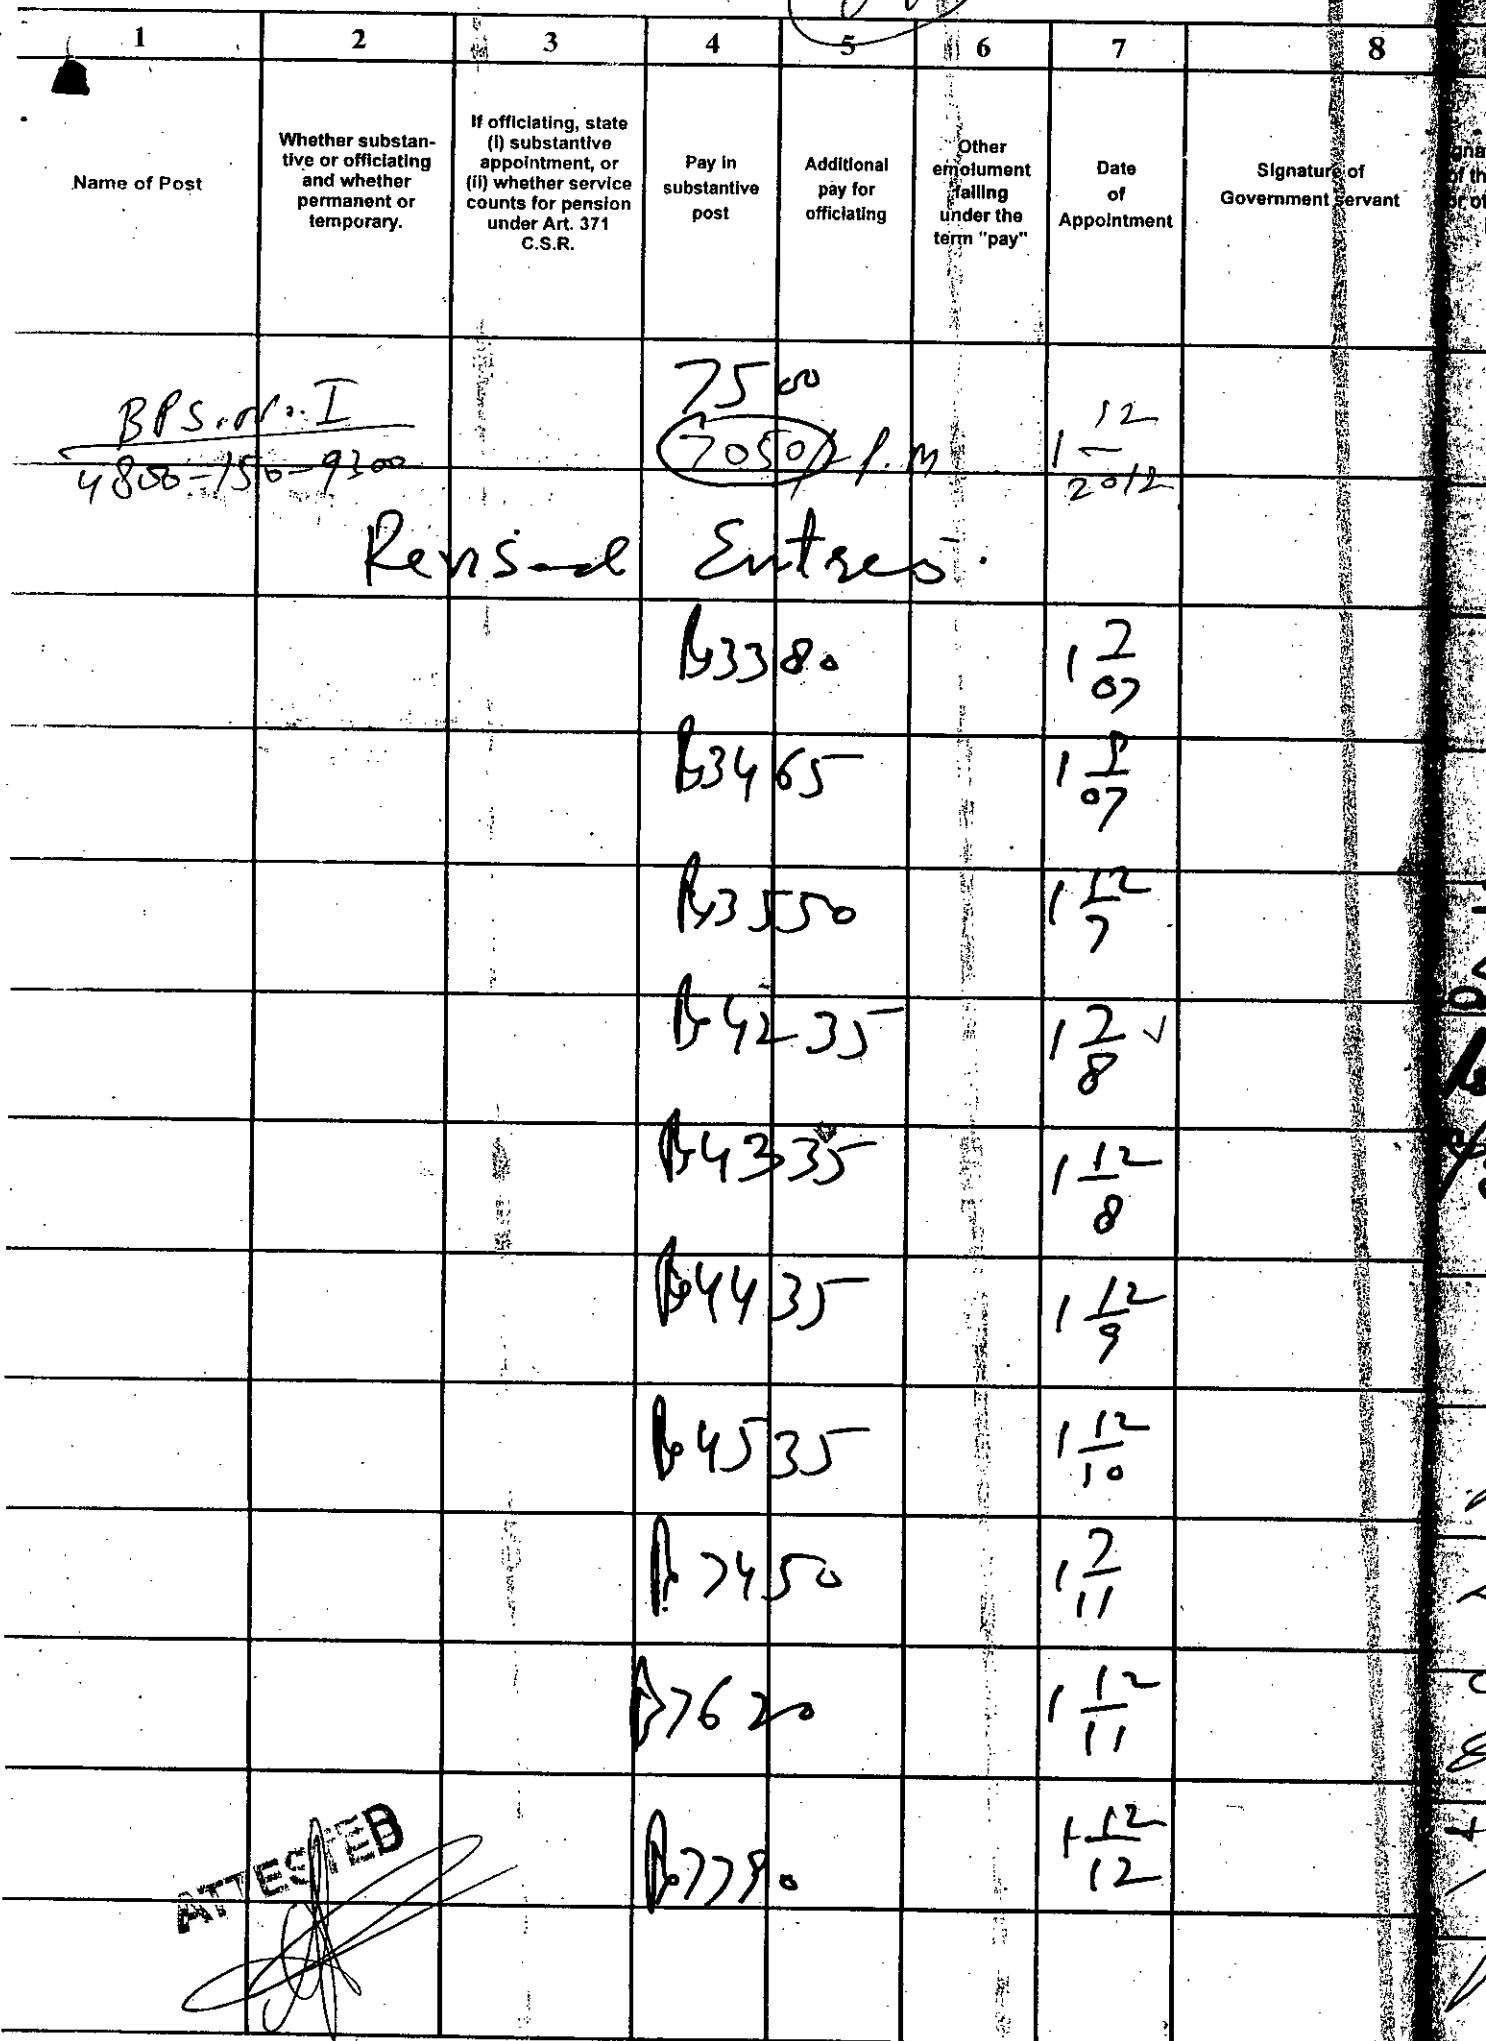 1 2 3 4 5 6 7 8
Name of Post
Whether substan-
tive or officiating
and whether
permanent or
temporary.
If officiating, state
(i) substantive
appointment, or
(ii) whether service
counts for pension
under Art. 371
C.S.R.
Pay in
substantive
post
Additional
pay for
officiating
Other
emolument
falling
under the
term "pay"
Date
of
Appointment
Signature of
Government servant
7500
BPS. No. I
4800-150-9300
7050/- p.m
1 12
2012
Revised Entres.
Rs 3380 1 2/07
Rs 3465
07
Rs 3550 1 12/7
Rs 4235 1 2/8 ✓
Rs 4335 1 12/8
Rs 4435 1 12/9
Rs 4535 1 12/10
Rs 7450 1 2/11
Rs 7620 1 12/11
1 12/12
ATTESTED